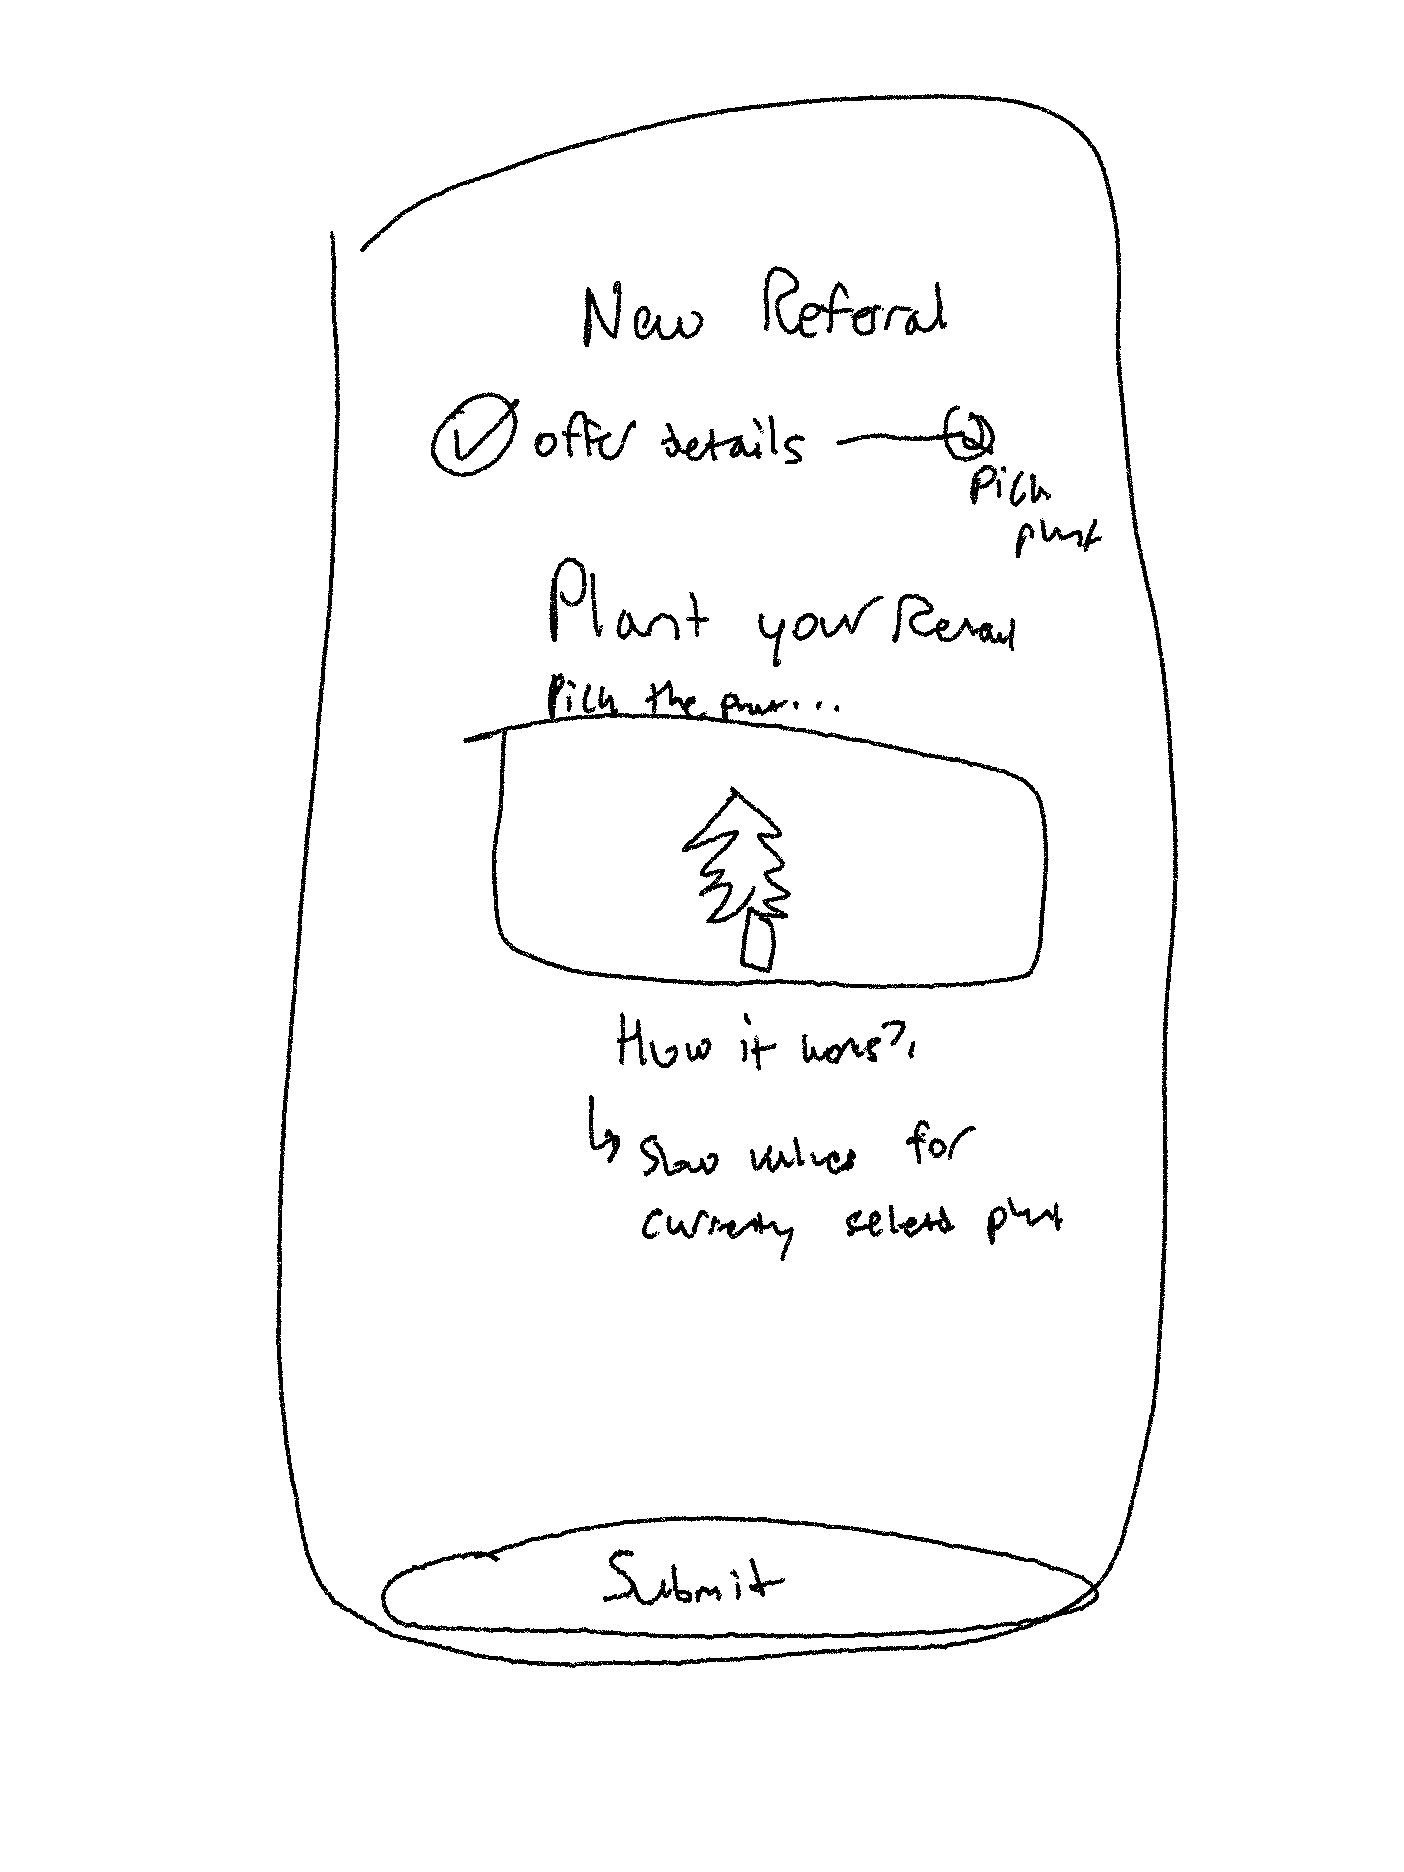 New Referral
offer details 2
Pick
plant
Plant your Referral
Pick the plant...
How it works?
Show values for
currently selected plant
Submit